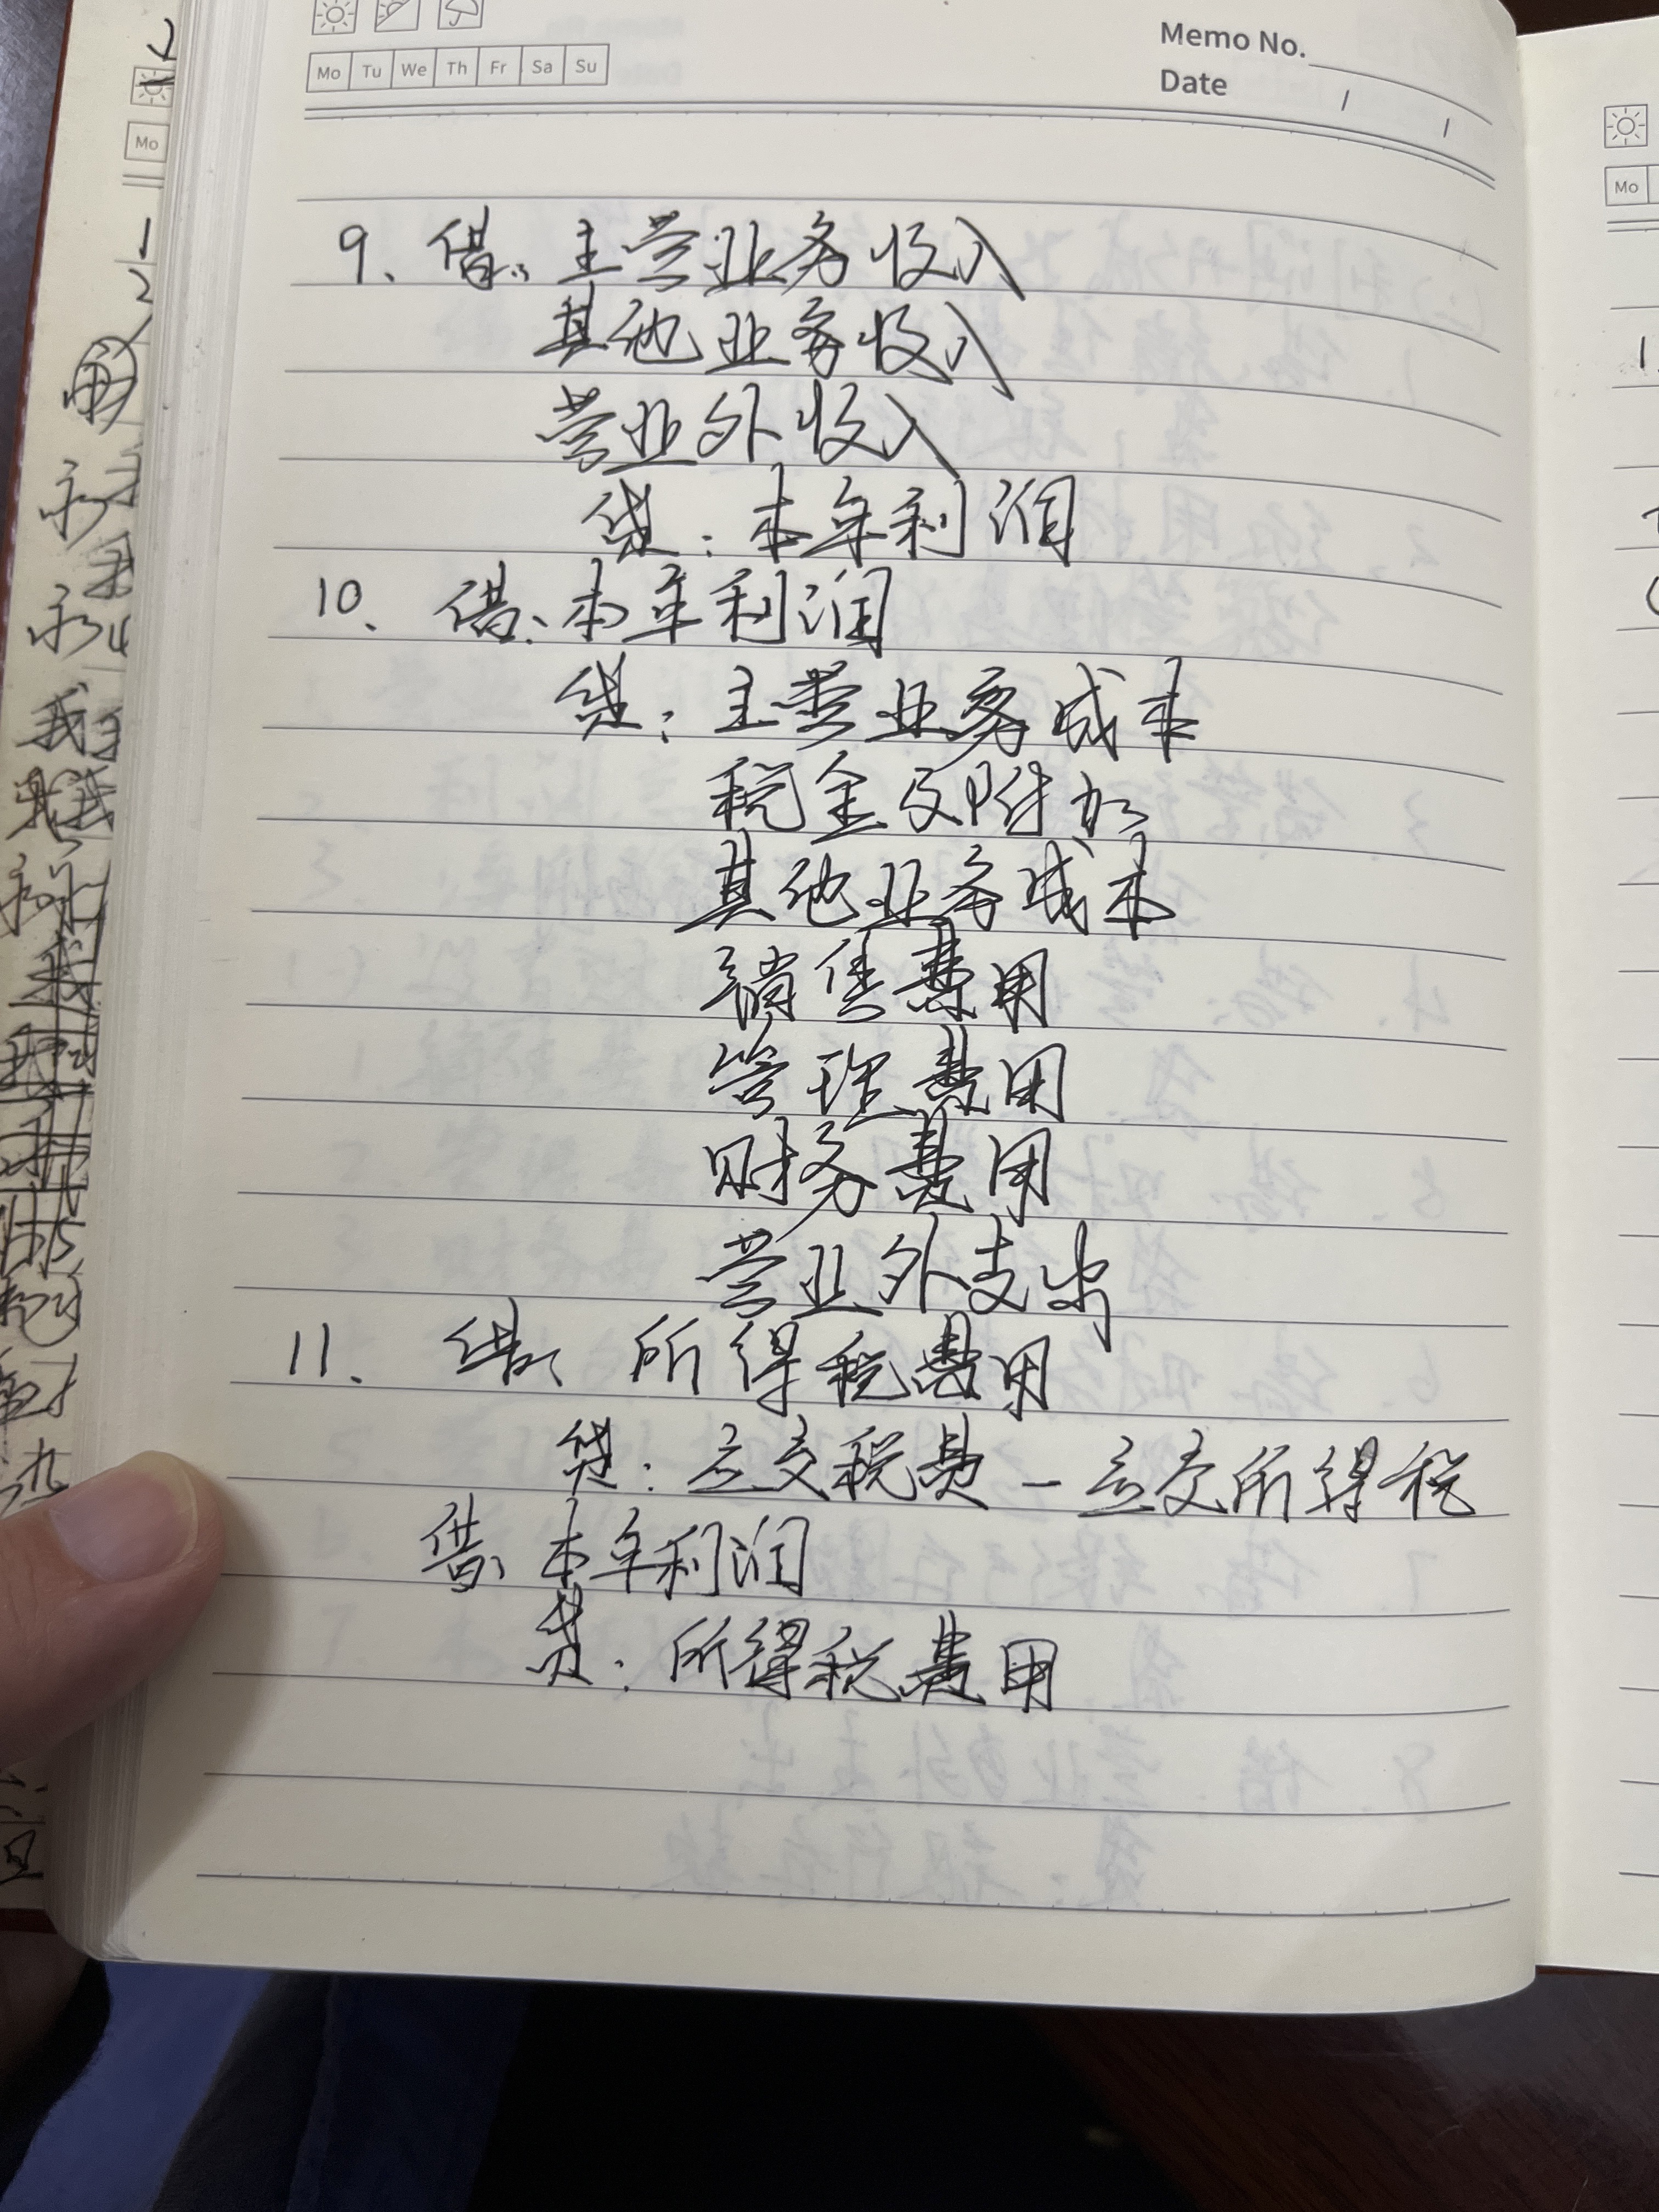 Mo Tu We Th Fr Sa Su
Memo No.
Date / /
9、借: 主营业务收入
其他业务收入
营业外收入
贷: 本年利润
10、借: 本年利润
贷: 主营业务成本
税金及附加
其他业务成本
销售费用
管理费用
财务费用
营业外支出
11、借: 所得税费用
贷: 应交税费-应交所得税
借: 本年利润
贷: 所得税费用
Mo
Mo